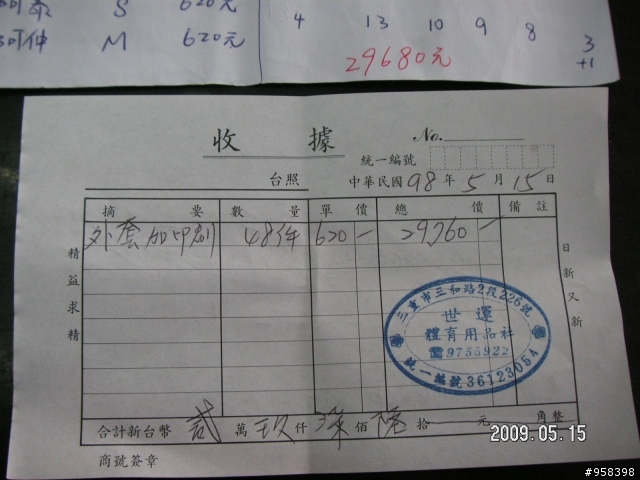 S 620元
M 620元
4 13 10 9 8 3
+1
29680元
收據
No.
統一編號
台照 中華民國 98 年 5 月 15 日
摘要 數量 單價 總價 備註
外套加印刷 48件 620 - 29,760 -
精益求精
日新又新
三重市三和路2段226號
世運
體育用品社
☎9755922
統一編號36123054
合計新台幣 貳 萬 玖 仟 柒 佰 陸 拾 元 角整
商號簽章
2009.05.15
#958398